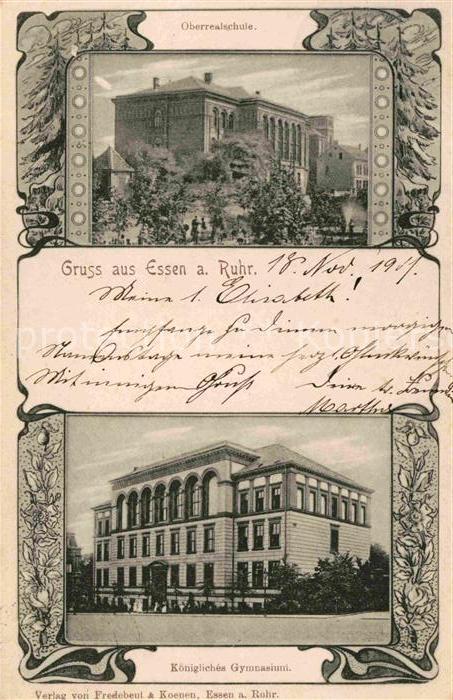 Oberrealschule.
Gruss aus Essen a. Ruhr. 18. Nov. 1901.
Meine l. Elisabeth!
Empfange zu Deinem morgigen
Namenstage meine herzl. Glückwünsche
Mit innigem Gruß Deine tr. Freundin
Martha
Königliches Gymnasium.
Verlag von Fredebeul & Koenen, Essen a. Ruhr.